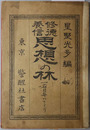 星野光多編
修徳
養信
思想の林
東京
警醒社書店